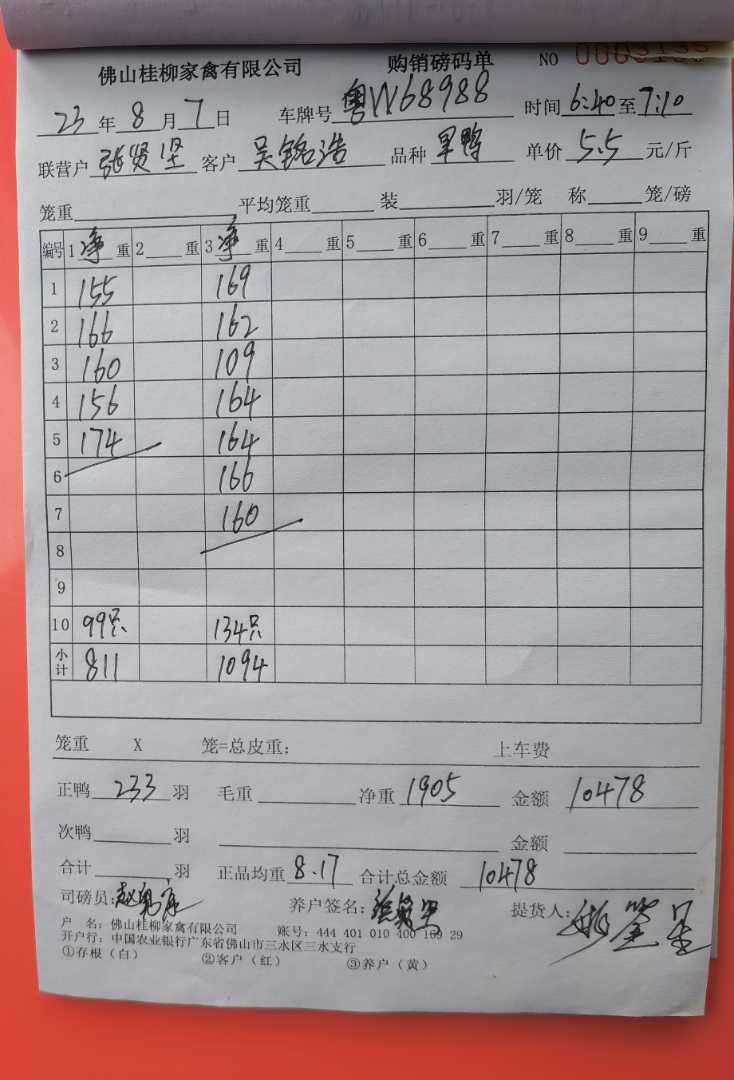 佛山桂柳家禽有限公司 购销磅码单 NO 0003133
23年8月7日 车牌号 粤W68988 时间 6:40至7:10
联营户 张贤坚 客户 吴铭浩 品种 单价 5.5 元/斤
笼重 平均笼重 装 羽/笼 称 笼/磅
编号 1 净 重 2 重 3 净 重 4 重 5 重 6 重 7 重 8 重 9 重
1 155 169
2 166 162
3 160 109
4 156 164
5 174 164
6 166
7 160
8
9
10 99只 134只
小计 811 1094
笼重 X 笼=总皮重: 上车费
正鸭 233 羽 毛重 净重 1905 金额 10478
次鸭 羽 金额
合计 羽 正品均重 8.17 合计总金额 10478
司磅员: 养户签名: 提货人:
户 名: 佛山桂柳家禽有限公司 账号: 444 401 010 400 169 29
开户行: 中国农业银行广东省佛山市三水区三水支行
①存根(白) ②客户(红) ③养户(黄)